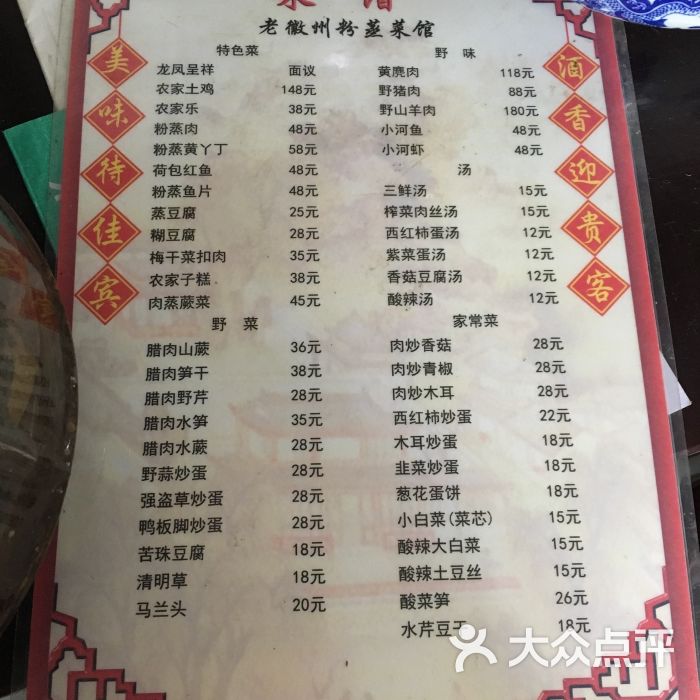 老徽州粉蒸菜馆
美味待佳宾
酒香迎贵客
特色菜
龙凤呈祥 面议
农家土鸡 148元
农家乐 38元
粉蒸肉 48元
粉蒸黄丫丁 58元
荷包红鱼 48元
粉蒸鱼片 48元
蒸豆腐 25元
糊豆腐 28元
梅干菜扣肉 35元
农家子糕 38元
肉蒸蕨菜 45元
野 菜
腊肉山蕨 36元
腊肉笋干 38元
腊肉野芹 28元
腊肉水笋 35元
腊肉水蕨 28元
野蒜炒蛋 28元
强盗草炒蛋 28元
鸭板脚炒蛋 28元
苦珠豆腐 18元
清明草 18元
马兰头 20元
野 味
黄麂肉 118元
野猪肉 88元
野山羊肉 180元
小河鱼 48元
小河虾 48元
汤
三鲜汤 15元
榨菜肉丝汤 15元
西红柿蛋汤 12元
紫菜蛋汤 12元
香菇豆腐汤 12元
酸辣汤 12元
家常菜
肉炒香菇 28元
肉炒青椒 28元
肉炒木耳 28元
西红柿炒蛋 22元
木耳炒蛋 18元
韭菜炒蛋 18元
葱花蛋饼 18元
小白菜(菜芯) 15元
酸辣大白菜 15元
酸辣土豆丝 15元
酸菜笋 26元
水芹豆干 18元
大众点评